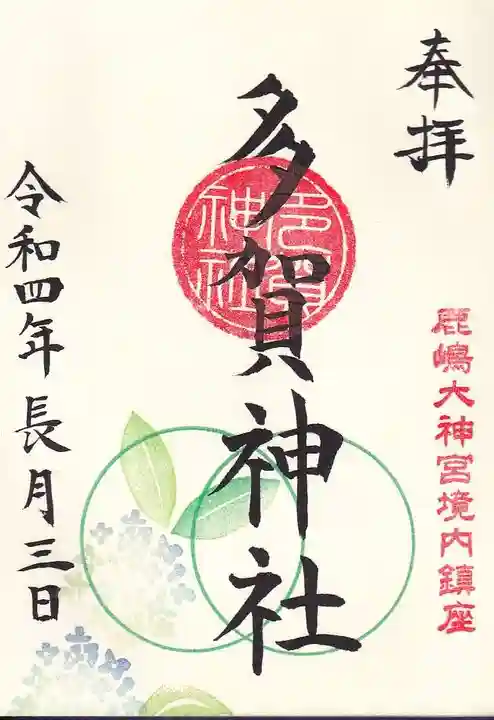 奉拝
鹿嶋大神宮境内鎮座
多賀神社
多賀神社
令和四年長月三日